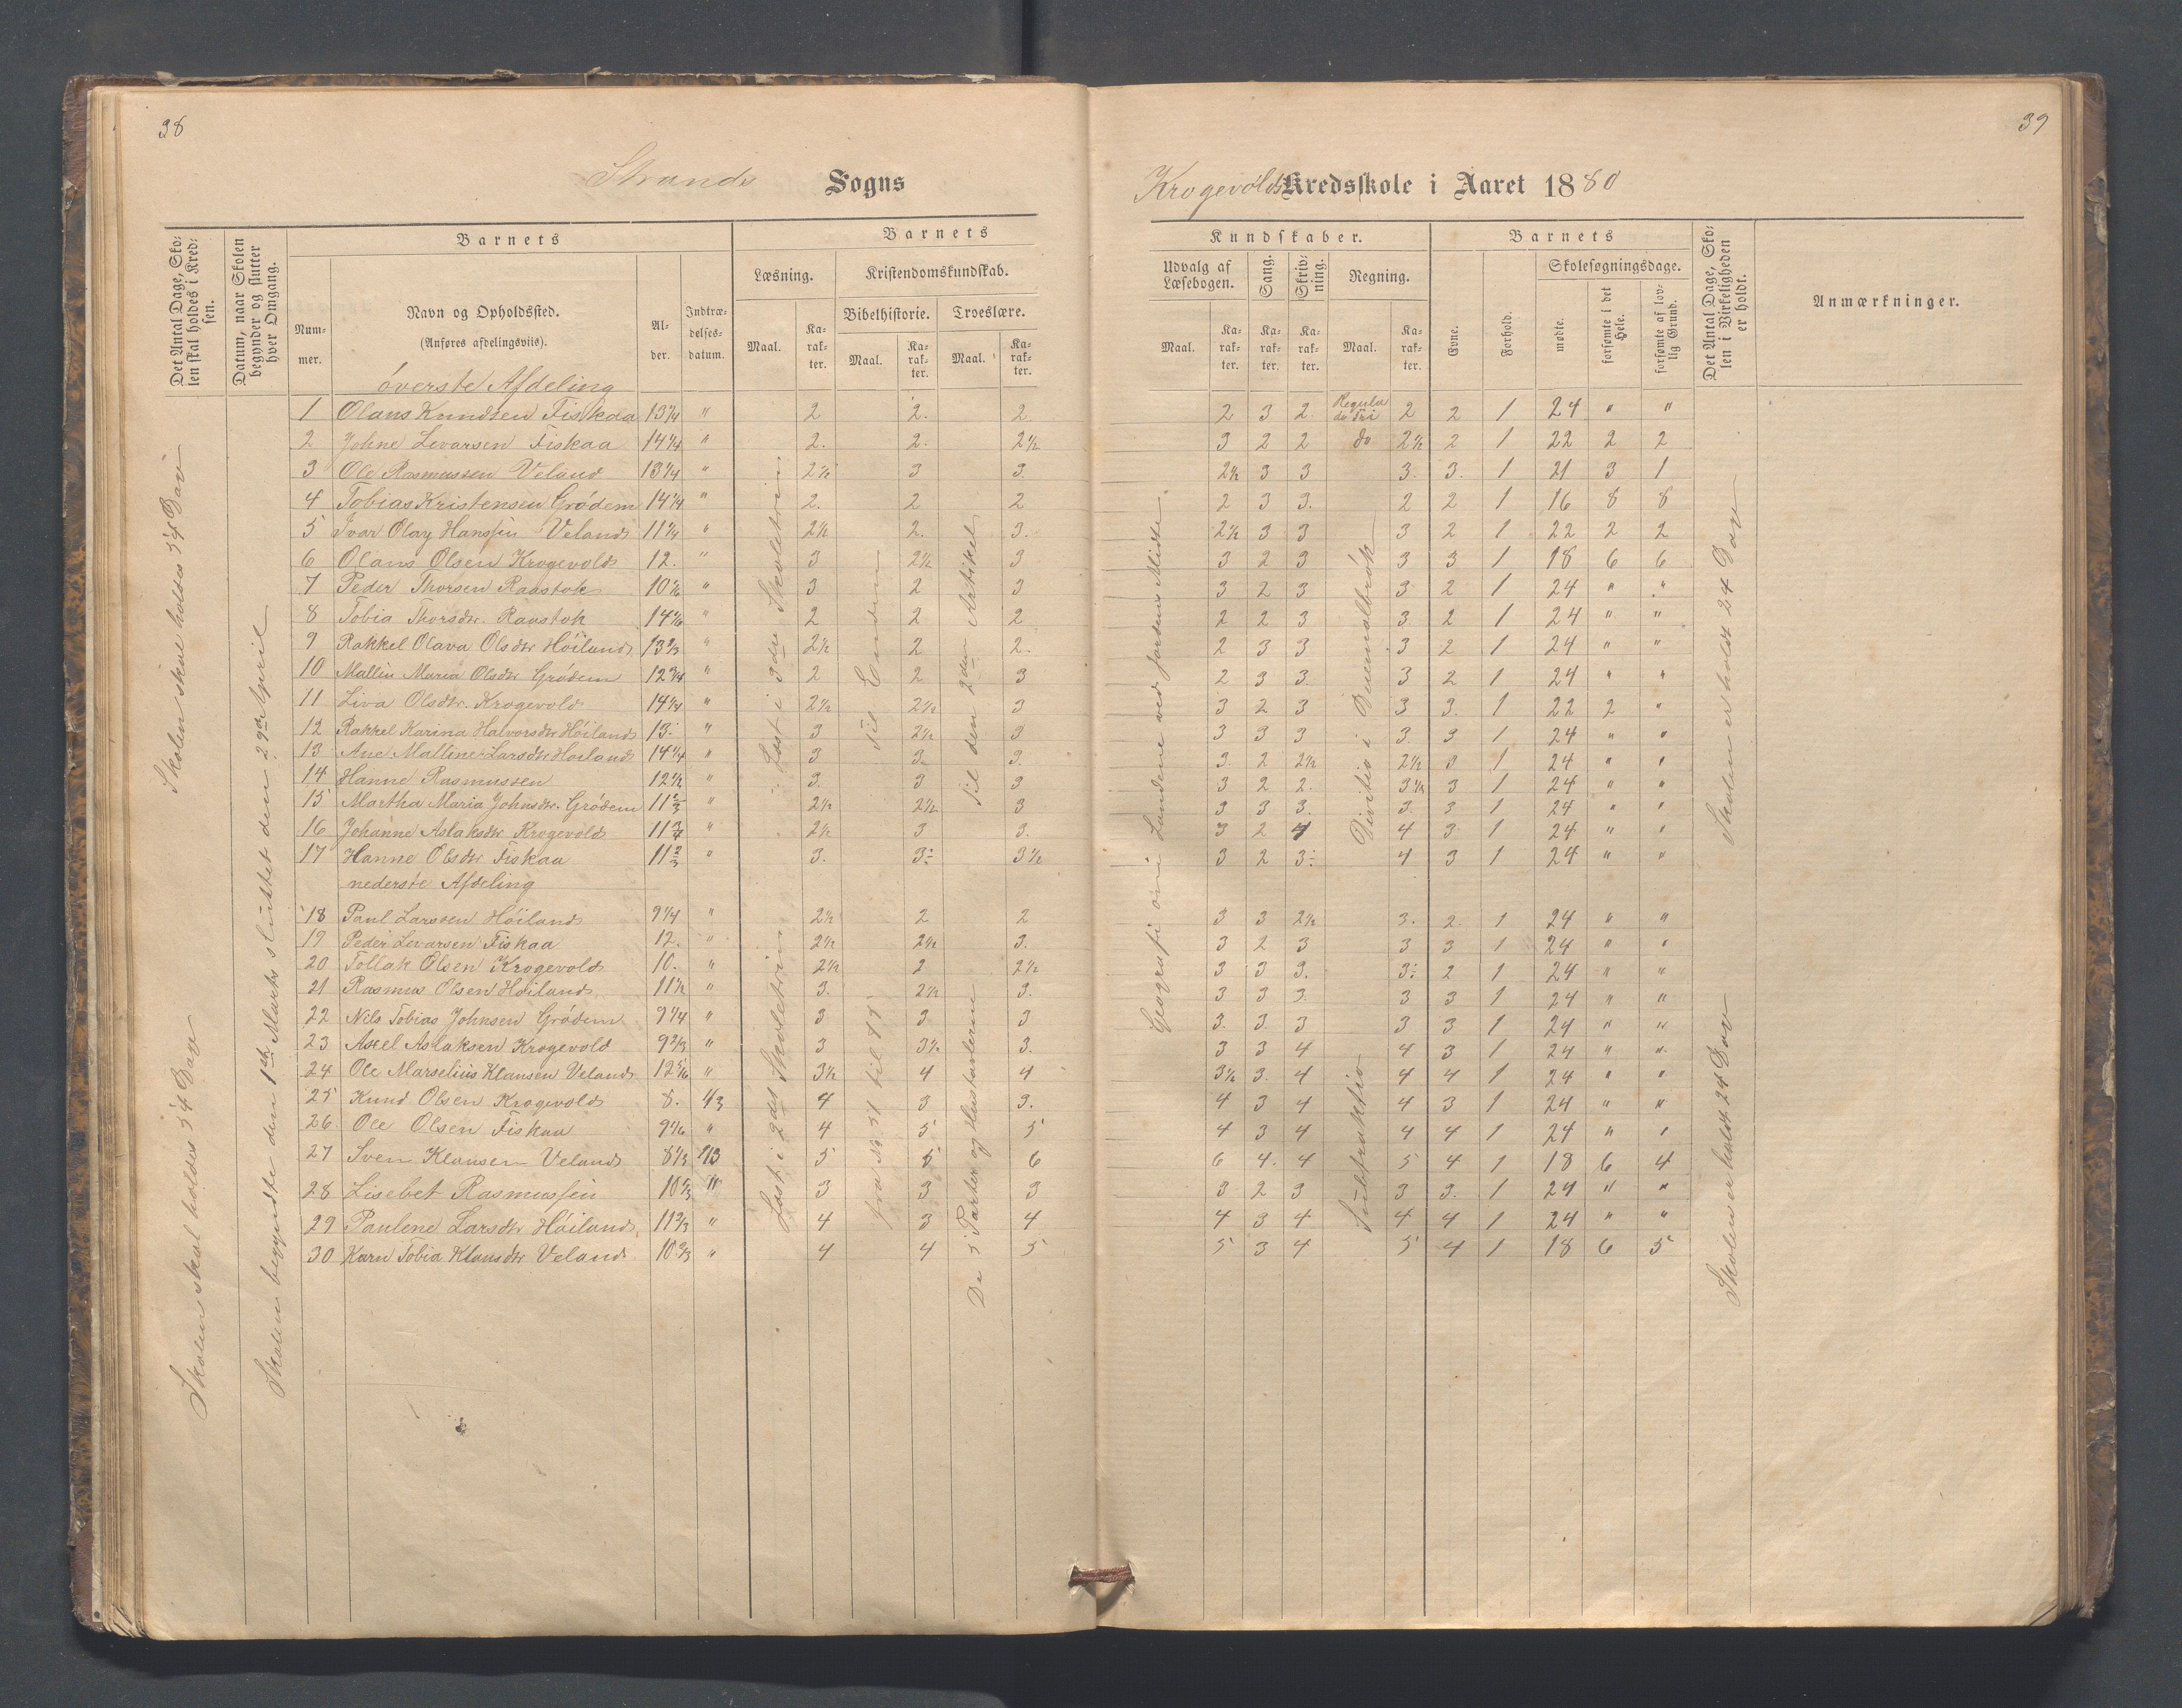 38
39
Strands Sogns
Krogevolds Kredsskole i Aaret 1880
Det Antal Dage, Skolen skal holdes i Kredsen.
Datum, naar Skolen begynder og slutter hver Omgang.
Barnets
Nummer.
Navn og Opholdssted.
(Anføres afdelingsviis).
Alder.
Indtrædelsesdatum.
Barnets
Læsning.
Maal.
Karakter.
Kristendomskundskab.
Bibelhistorie.
Maal.
Karakter.
Troeslære.
Maal.
Karakter.
Kundskaber.
Udvalg af Læsebogen.
Maal.
Karakter.
Sang.
Karakter.
Skrivning.
Karakter.
Regning.
Maal.
Karakter.
Barnets
Evne.
Forhold.
Skolesøgningsdage.
mødte.
forsømte i det Hele.
forsømte af lovlig Grund.
Det Antal Dage, Skolen i Virkeligheden er holdt.
Anmærkninger.
øverste Afdeling
1 Olans Knudsen Fiskaa 13 1/4 " 2 2. 2. 2 3 2. Regula de Tri 2 2 1 24 " "
2 Johne Levarsen Fiskaa 14 1/4 " 2. 2. 2½ 3 2 2 do 2½ 2 1 22 2 2
3 Ole Rasmussen Veland 13 1/4 " 2½ 3 3. 2½ 3 3 3. 3. 1 21 3 1
4 Tobias Kristensen Grödem 14 1/4 " 2. 2 2 2 3 3. 2 2 1 16 8 8
5 Ivar Olay Hanssen Veland 11 1/4 " 2½ 2. 3. 2½ 3 3 3 2 1 22 2 2
6 Olans Olsen Krogevold 12. " 3 2½ 3 3 2 3 3 3 1 18 6 6
7 Peder Thorsen Raustok 10 1/6 " 3 2 3 3 2 3 3 2 1 24 " "
8 Tobia Thorsdtr. Raustok 14 1/6 " 2 2 2 2 2 3 3. 2 1 24 " "
9 Rakkel Olava Olsdtr Höiland 13 2/3 " 2½ 2 2. 2 3 3 3 2 1 24 " "
10 Mallin Maria Olsdtr Grödem 12 3/4 " 2 2 3 2 3 3 3 2 1 24 " "
11 Liva Olsdtr. Krogevold 14 1/4 " 2½ 2½ 3 3 2 3 3 3. 1 22 2 "
12 Rakkel Karina Halvorsdtr Höiland 13. " 3 2½ 3 3 3 3 3. 3 1 24 " "
13 Ane Malline Larsdtr Höiland 14 1/4 " 3 3. 3. 3. 2 2½ 2½ 3 1 24 " "
14 Hanne Rasmussen 12 1/2 " 3. 3 3 3 2 2. 3½ 3 1 24 " "
15 Martha Maria Johnsdtr. Grödem 11 2/3 " 2½ 2½ 3 3 3 3. 3. 3 1 24 " "
16 Johanne Aslaksdtr Krogevold 11 3/4 " 2½ 3 3. 3 2 4 4 3 1 24 " "
17 Hanne Olsdtr Fiskaa 11 2/3 " 3. 3÷ 3½ 3 2 3÷ 4 3 1 24 " "
nederste Afdeling
18 Paul Larssen Höiland 9 1/4 " 2½ 2 2 3 3 2½ 3. 2. 1 24 " "
19 Peder Levarsen Fiskaa 12. " 2½ 2½ 3. 3 2 3 3 3 1 24 " "
20 Tollak Olsen Krogevold 10. " 2½ 2 2½ 3 3 3. 3÷ 2 1 24 " "
21 Rasmus Olsen Höiland 11 1/2 " 3. 2½ 3. 3 3 3. 3 3 1 24 " "
22 Nils Tobias Johnsen Grödem 9 1/4 " 3 3 3 3. 3. 3 3 3 1 24 " "
23 Axel Aslaksen Krogevold 9 2/3 " 3 3½ 3. 3 3 4 4 3 1 24 " "
24 Ole Marselius Klausen Veland 12 5/6 " 3½ 4 4 3½ 3. 4 4 4 1 24 " "
25 Knud Olsen Krogevold 8. 1/3 4 3 3. 4 3 4 4 3 1 24 " "
26 Ole Olsen Fiskaa 9 1/6 " 4 5 5 4 3 4 4 4 1 24 " "
27 Sven Klausen Veland 8 1/3 1/3 5 5 6 6 4. 4 5 4 1 18 6 4
28 Lisebet Rasmussen 10 2/3 " 3 3 3 3 2 3 3 3. 1 24 " "
29 Paulene Larsdtr Höiland 11 2/3 " 4 3 4 4 3 4 4 4 1 24 " "
30 Karn Tobia Klausdtr Veland 10 2/3 " 4 4 5 5 3 4 5 4 1 18 6 5
Skolen skal holdes 54 Dav
Skolen skal holdes 54 Dage
Skolen begyndte den 1ste Marts sluttet den 29de April
Læst i 3die Skoletrin
Læst i 2det Skoletrin
til Enden
fra No 51 til 77
til den 2den Artikel
De 5 Parter og Hustavlerne
Geografi om Landene ved Jordens Midte.
Divitio i Decimalbrök
Subtraktio
Skolen er holdt 24 Dav
Skolen er holdt 24 Dav